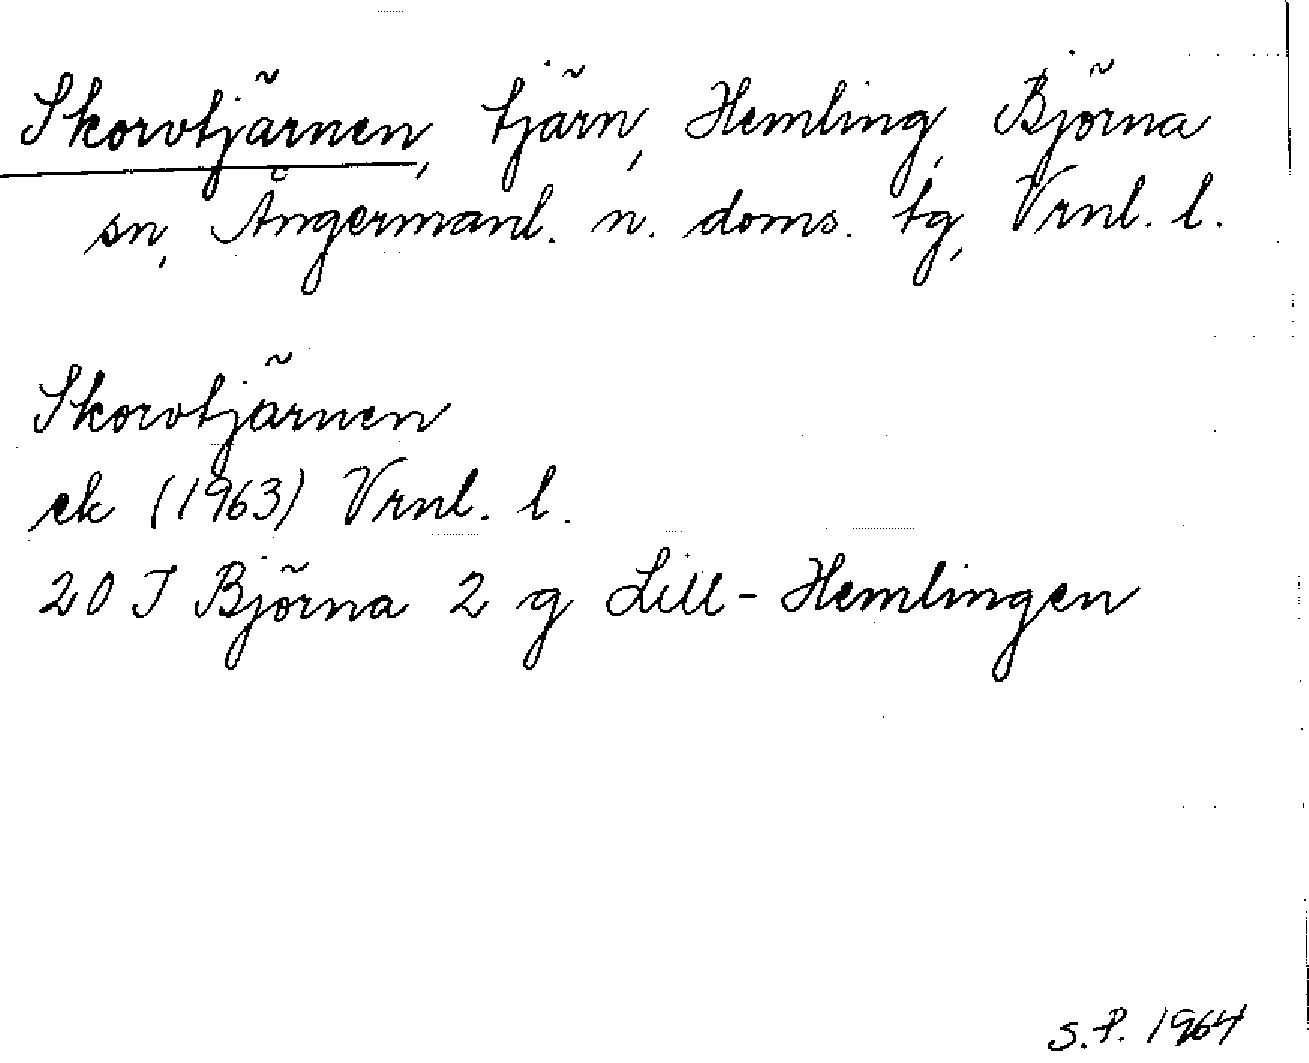 Skorvtjärnen, tjärn, Hemling, Björna
sn, Ångermanl. n. doms. tg, Vrnl. l.
Skorvtjärnen
ek (1963) Vrnl. l.
20 J Björna 2 g Lill-Hemlingen
S.P. 1964